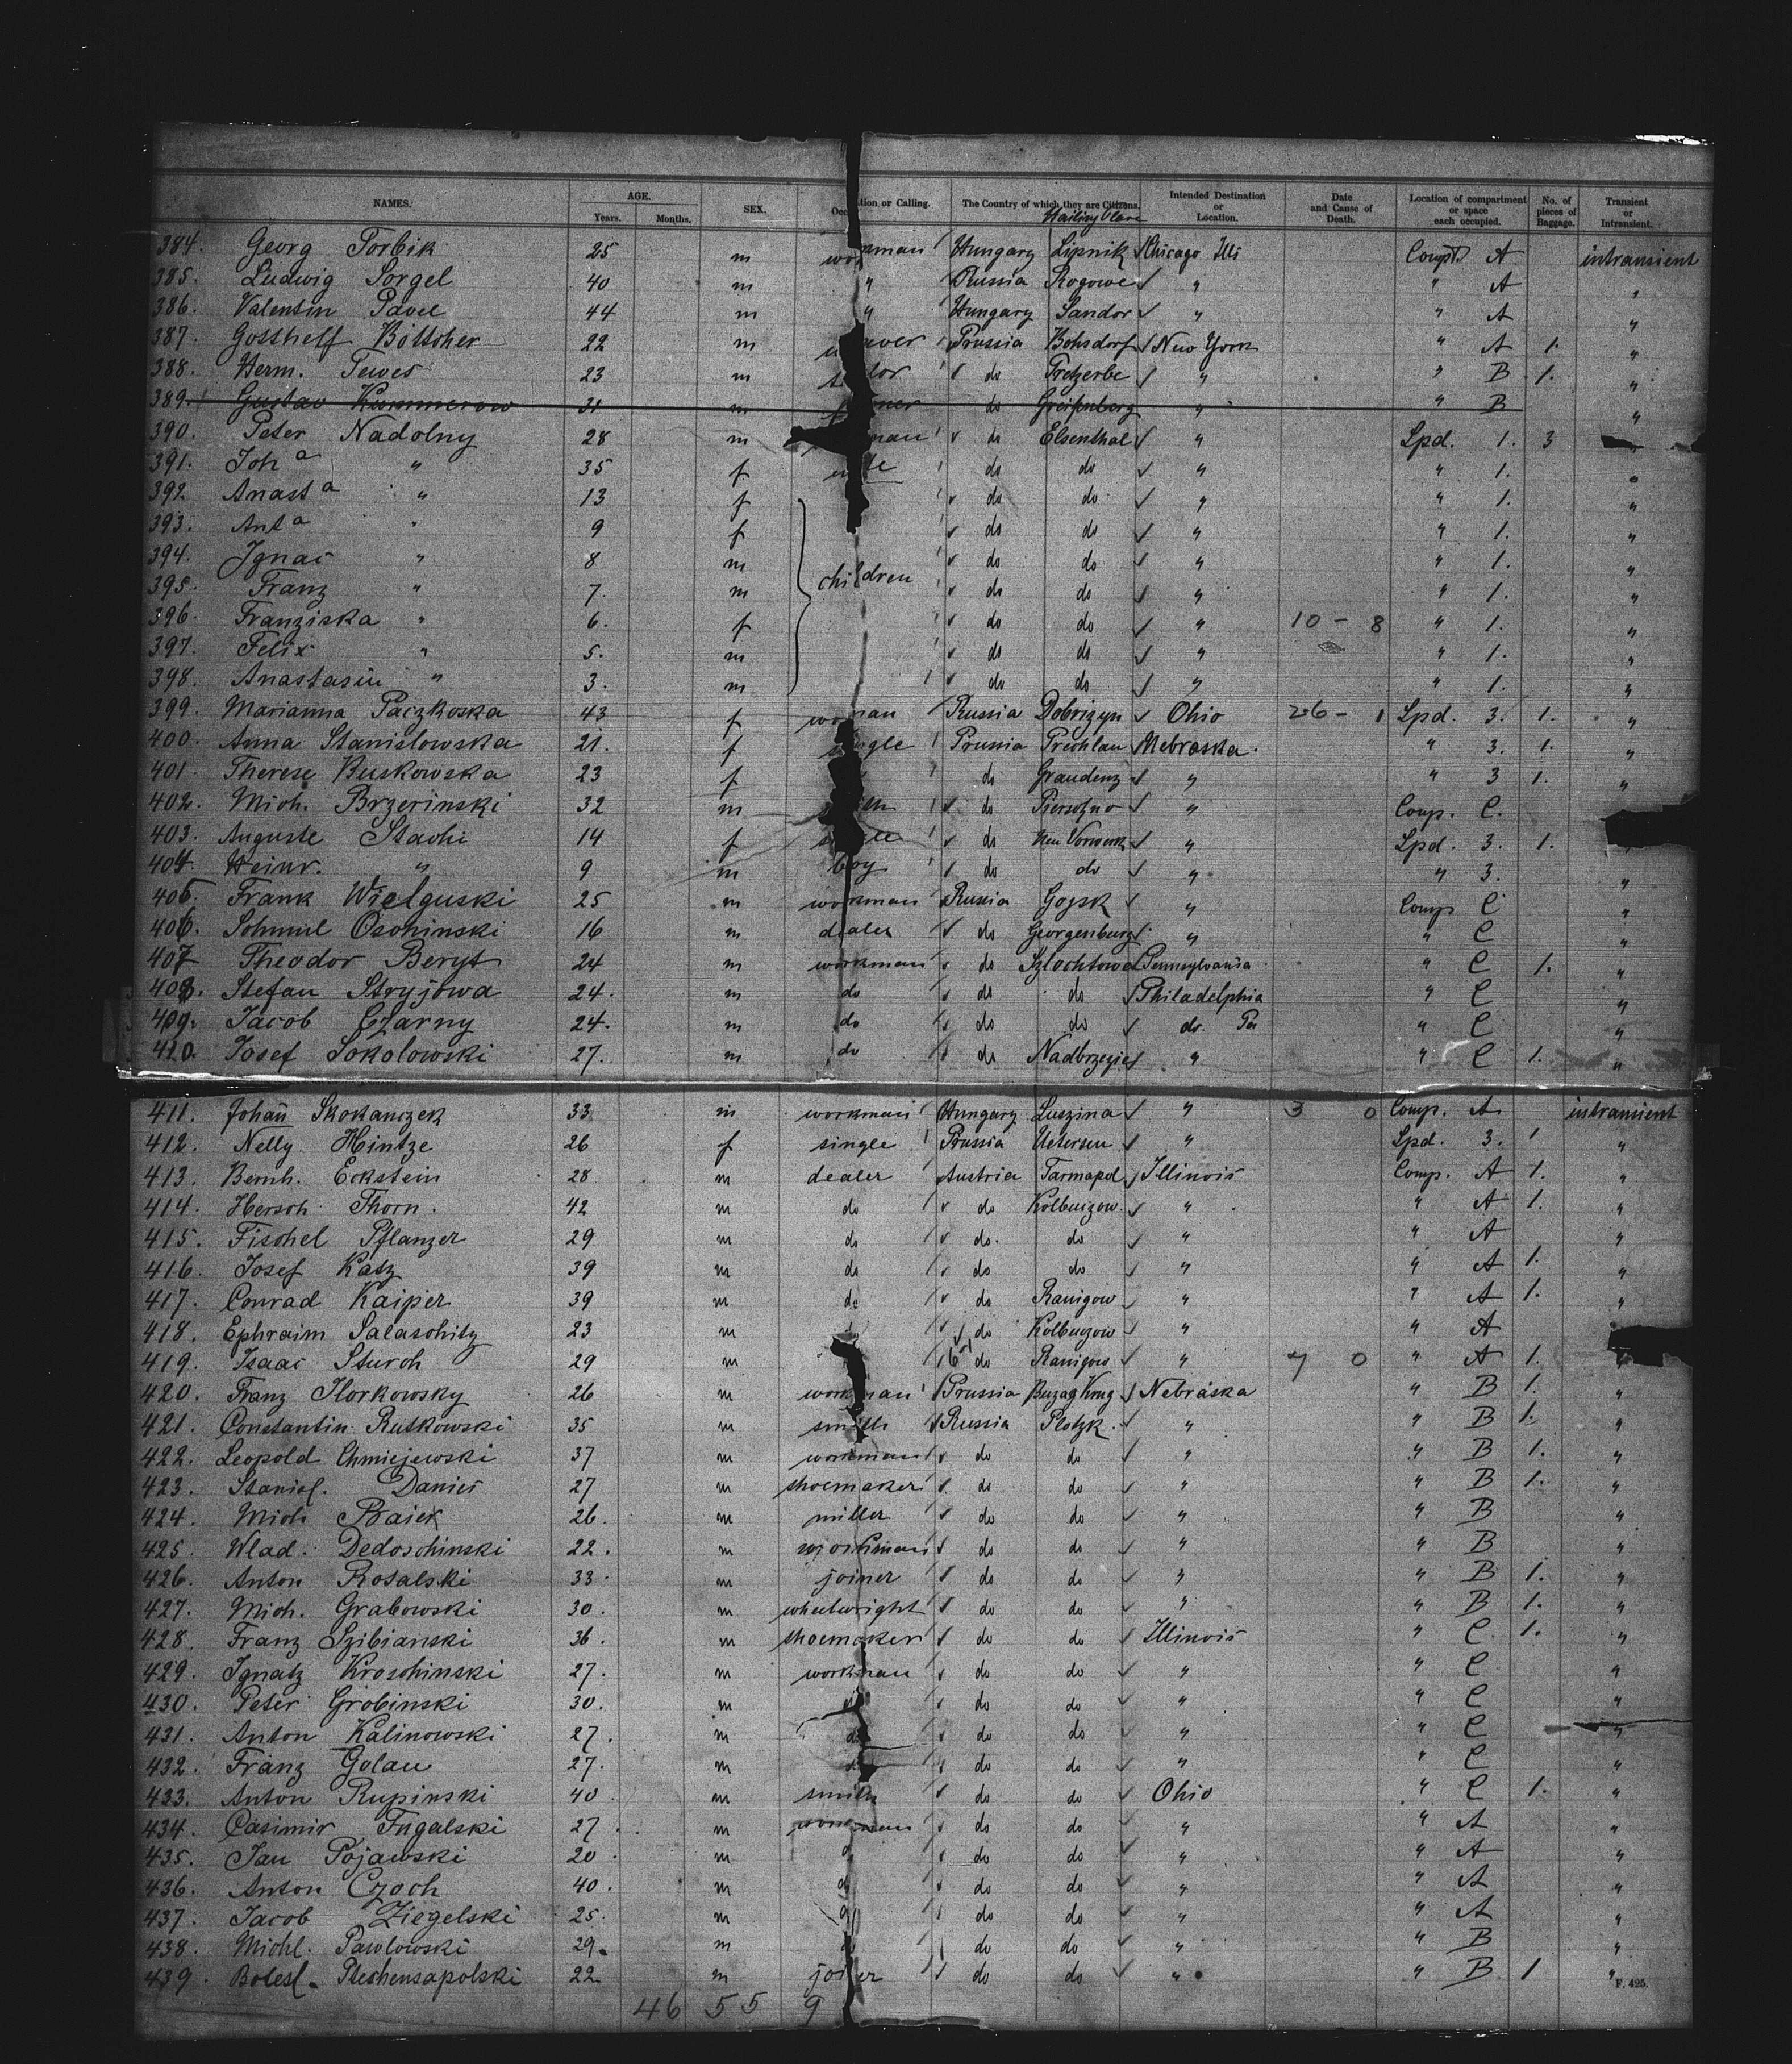 NAMES. AGE. Years. Months. SEX. Occupation or Calling. The Country of which they are Citizens. Hailing Place Intended Destination or Location. Date and Cause of Death. Location of compartment or space each occupied. No. of pieces of Baggage. Transient or Intransient.
384. Georg Torbik 25 m workman Hungary Lipnik Chicago Ills Compt A intransient
385. Ludwig Sorgel 40 m " Russia Rogowe " " A "
386. Valentin Pavel 44 m " Hungary Sandor " " A "
387. Gotthelf Böttcher 22 m weaver Prussia Bohsdorf New York " A 1. "
388. Herm. Tewes 23 m tailor do Fretzerbe " " B 1. "
389. Gustav Kummerow 31 m do Greifenberg " " B "
390. Peter Nadolny 28 m workman do Elsenthal " Spd. 1. 3 "
391. Joh a " 35 f wife do do " " 1. "
392 Anast a " 13 f do do " " 1. "
393. Ant a " 9 f do do " " 1. "
394. Ignac " 8 m children do do " " 1. "
395. Franz " 7. m do do " " 1. "
396. Franziska " 6. f do do " 10 - 8 " 1. "
397. Felix " 5. m do do " " 1. "
398. Anastasin " 3. m do do " " 1. "
399. Marianna Paczkoska 43 f woman Russia Dobrizyn Ohio 26 - 1 Spd. 3. 1. "
400. Anna Stanislowska 21. f single Prussia Prechlau Nebraska. " 3. 1. "
401. Therese Buskowska 23 f do Graudenz " " 3 1. "
402. Mich. Brzerinski 32 m smith do " Comp. C.
403. Auguste Stachi 14 f single do Neu Vorwerk " Spd. 3. 1. "
404. Heinr. " 9 m boy do do " " 3. "
405. Frank Wielguski 25 m workman Russia Gojsk " Comp C "
406. Schmul Oschinski 16 m dealer do Georgenburg " " C "
407 Theodor Beryt 24 m workman do Szlochtowa Pennsylvania " C 1. "
408. Stefan Stryjowa 24. m do do do Philadelphia " C "
409. Jacob Czarny 24. m do do do do. Pa " C "
410. Josef Sokolowski 27. m do do Nadbrzezie " " C 1. "
411. Johan̄ Skokanczek 33 m workman Hungary Luszina " 3 0 Comp. A intransient
412. Nelly Hintze 26 f single Prussia Uetersen " Spd. 3. 1 "
413. Bernh. Eckstein 28 m dealer Austria Tarmapol Illinois Comp. A 1. "
414. Hersch Thorn. 42 m do do Kolbuczow. " " A 1. "
415. Fischel Pflanzer 29 m do do. do " " A "
416. Josef Katz 39 m do do do " " A 1. "
417. Conrad Kaiper 39 m do do Ranigow " " A 1. "
418. Ephraim Salaschitz 23 m do Kolbuczow " " A
419. Isaac Sturch 29 m do Ranigow " 7 0 " A 1. "
420. Franz Ilorkowsky 26 m workman Prussia Nebraska " B 1. "
421. Constantin Rutkowski 35 m smith Russia Plotzk. " " B 1. "
422. Leopold Chmiejewski 37 m workman do do " " B 1. "
423. Stanisl. Danies 27 m shoemaker do do " " B 1. "
424. Mich Baier 26. m miller do do " " B "
425. Wlad. Dedoschinski 22. m workman do do " " B "
426. Anton Rosalski 33. m joiner do do " " B 1. "
427. Mich. Grabowski 30. m wheelwright do do " " B 1. "
428. Franz Szibianski 36. m shoemaker do do Illinois " C. 1. "
429. Ignatz Kroschinski 27. m workman do do " " C "
430. Peter Grobinski 30. m do do do " " C "
431. Anton Kalinowski 27. m do do do " " C "
432. Franz Golau 27. m do do " " C "
433. Anton Rupinski 40 m smith do do Ohio " C 1. "
434. Casimir Fugalski 27. m workman do do " " A "
435. Jan Pojawski 20. m do do " " A "
436. Anton Czoch 40. m do do do " " A "
437. Jacob Ziegelski 25. m do do do " " A "
438. Michl. Pawlowski 29. m do do " " B "
439. Bolesl. Plechensapolski 22 m joiner do do " " B 1 "
F. 425.
46 55 9